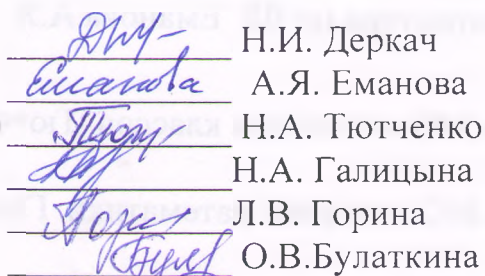 Н.И. Деркач
Еманова А.Я. Еманова
Н.А. Тютченко
Н.А. Галицына
Л.В. Горина
О.В.Булаткина